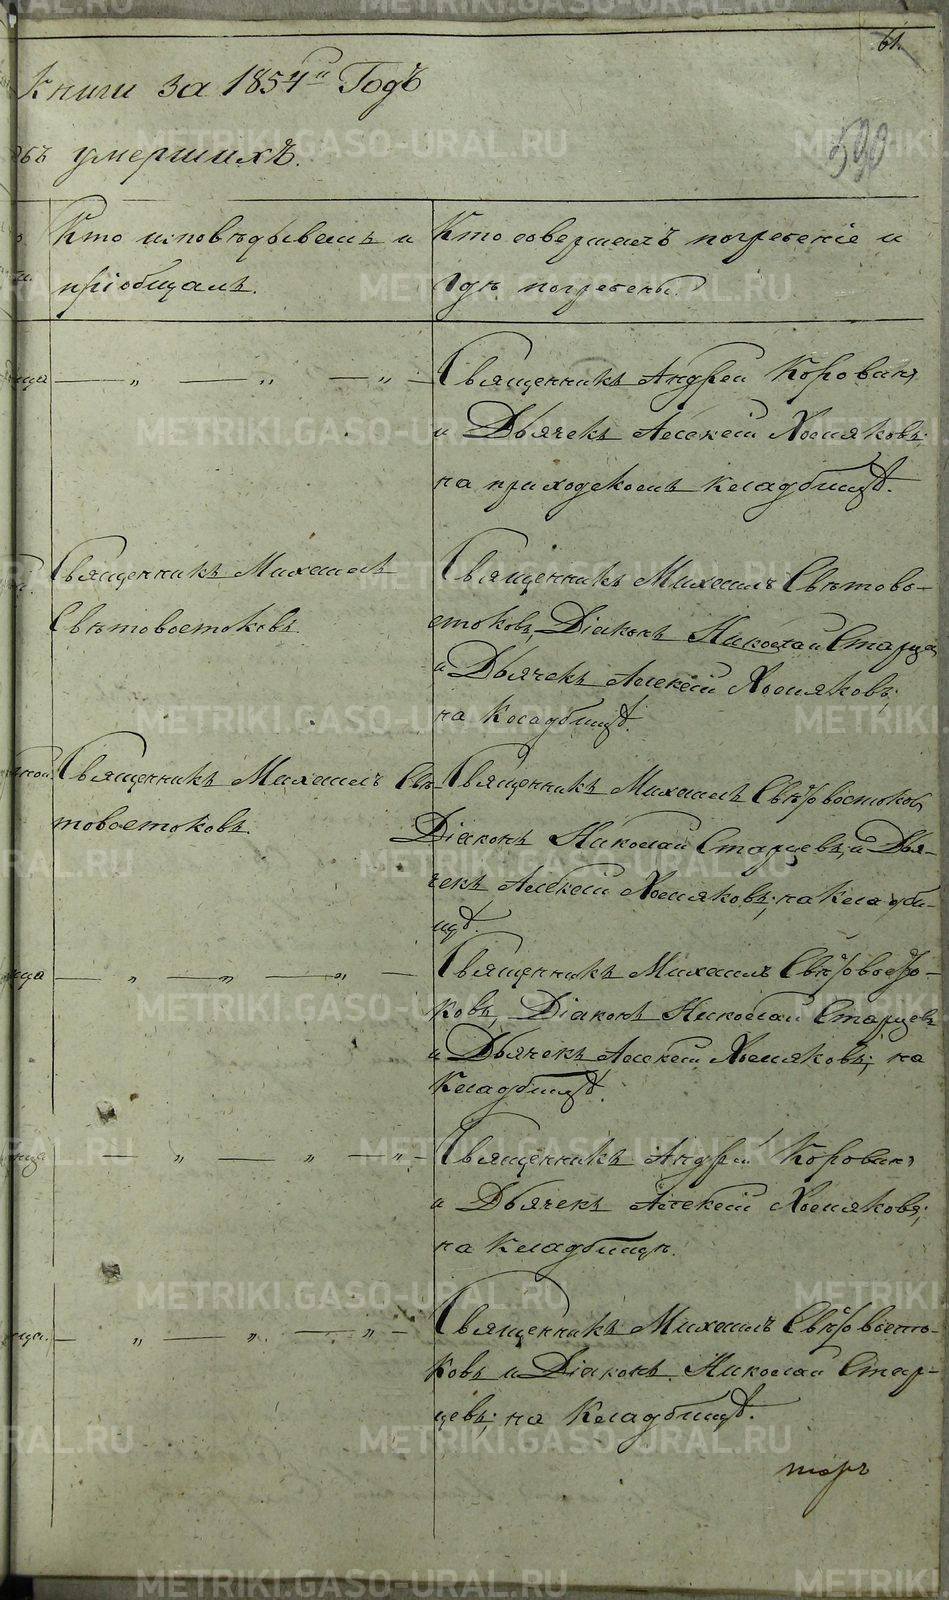 61.
Книги за 1854й Годъ
объ умершихъ.
590
Кто исповѣдывалъ и
пріобщалъ.
Кто совершалъ погребеніе и
гдѣ погребены.
Священникъ Андрей Коровин
и Дьячекъ Алексѣй Хомяковъ;
на приходскомъ кладбищѣ.
Священникъ Михаилъ
Свѣтовостоковъ.
Священникъ Михаилъ Свѣтово-
стоковъ, Діаконъ Николай Старцев
и Дьячекъ Алексѣй Хомяковъ;
на кладбищѣ.
Священникъ Михаилъ Свѣ-
товостоковъ.
Священникъ Михаилъ Свѣтовостоков
Діаконъ Николай Старцевъ, и Дья-
чекъ Алексѣй Хомяковъ; на кладби-
щѣ.
ица
Священникъ Михаилъ Свѣтовосто-
ковъ, Діаконъ Николай Старцевъ
и Дьячекъ Алексѣй Хомяковъ; на
Кладбищѣ.
Священникъ Андрей Коровин
и Дьячекъ Алексѣй Хомяковъ;
на Кладбищѣ.
Священникъ Михаилъ Свѣтовосто-
ковъ и Діаконъ Николай Стар-
цевъ; на Кладбищѣ.
METRIKI.GASO-URAL.RU